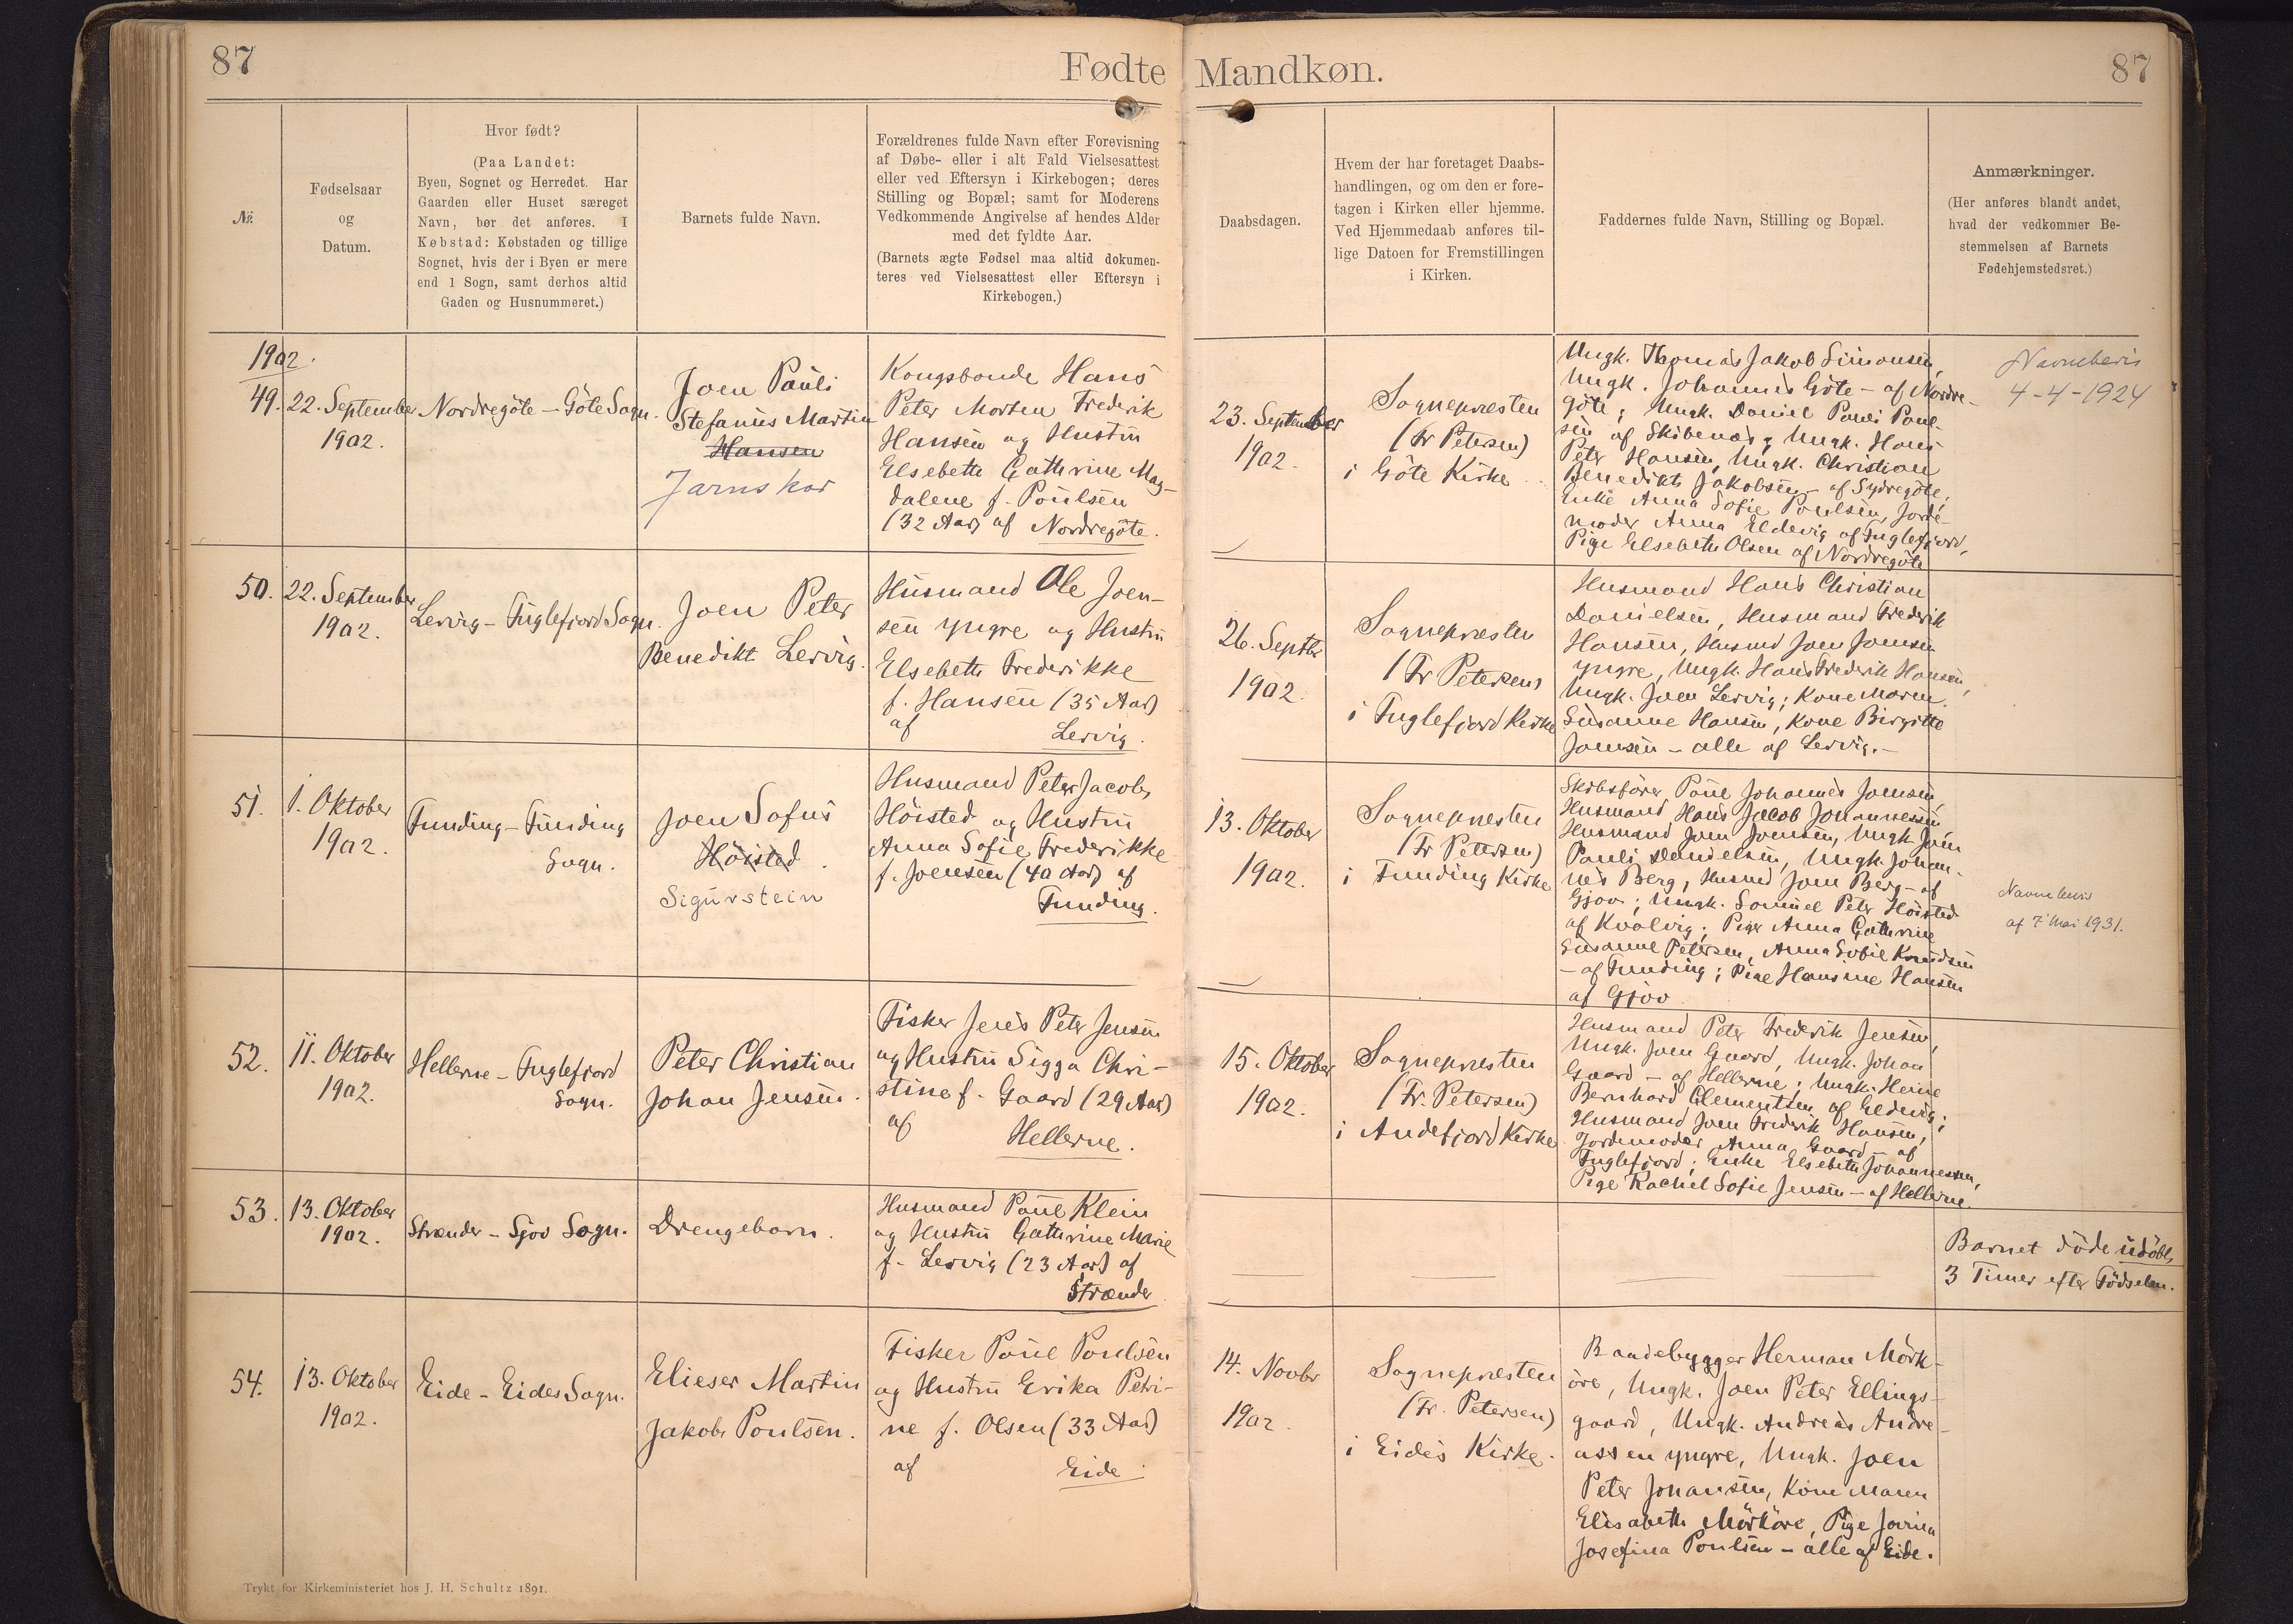 87
Fødte Mandkøn.
87
№
Fødselsaar
og
Datum.
Hvor født?
(Paa Landet:
Byen, Sognet og Herredet. Har
Gaarden eller Huset særeget
Navn, bør det anføres. I
Købstad: Købstaden og tillige
Sognet, hvis der i Byen er mere
end 1 Sogn, samt derhos altid
Gaden og Husnummeret.)
Barnets fulde Navn.
Forældrenes fulde Navn efter Forevisning
af Døbe- eller i alt Fald Vielsesattest
eller ved Eftersyn i Kirkebogen; deres
Stilling og Bopæl; samt for Moderens
Vedkommende Angivelse af hendes Alder
med det fyldte Aar.
(Barnets ægte Fødsel maa altid dokumen-
teres ved Vielsesattest eller Eftersyn i
Kirkebogen.)
Daabsdagen.
Hvem der har foretaget Daabs-
handlingen, og om den er fore-
tagen i Kirken eller hjemme.
Ved Hjemmedaab anføres til-
lige Datoen for Fremstillingen
i Kirken.
Faddernes fulde Navn, Stilling og Bopæl.
Anmærkninger.
(Her anføres blandt andet,
hvad der vedkommer Be-
stemmelsen af Barnets
Fødehjemstedsret.)
1902.
49.
22. September
1902.
Nordregöte - Göte Sogn.
Joen Pauli
Stefanus Martin
Hansen
Jarnskor
Kongsbonde Hans
Peter Morten Frederik
Hansen og Hustru
Elsebeth Cathrine Mag-
dalene f. Poulsen
(32 Aar) af Nordregöte.
23. September
1902.
Sognepræsten
(Fr Petersen)
i Göte Kirke
Ungk. Thomas Jakob Simonsen,
Ungk. Johannes Göte - af Nordre-
göte; Ungk. Daniel Pauli Poul-
sen af Skibenæs; Ungk. Hans
Peter Hansen, Ungk. Christian
Benedikt Jakobsen - af Sydregöte;
Enke Anna Sofie Poulsen, Jorde-
moder Anna Eldevig af Fuglefjord,
Pige Elsebeth Olsen af Nordregöte
Navnebevis
4-4-1924
50.
22. September
1902.
Lervig - Fuglefjord Sogn.
Joen Peter
Benedikt Lervig.
Husmand Ole Joen-
sen yngre og Hustru
Elsebeth Frederikke
f. Hansen (35 Aar)
af Lervig.
26. Septbr
1902.
Sognepræsten
(Fr Petersen)
i Fuglefjord Kirke
Husmand Hans Christian
Danielsen, Husmand Frederik
Hansen, Husmd Joen Joensen
yngre, Ungk. Hans Frederik Hansen,
Ungk. Joen Lervig; Kone Maren
Susanne Hansen, Kone Birgitte
Joensen - alle af Lervig.-
51.
1. Oktober
1902.
Funding - Funding
Sogn.
Joen Sofus
Höisted.
Sigurstein
Husmand Peter Jacob
Höisted og Hustru
Anna Sofie Frederikke
f. Joensen (40 Aar) af
Funding.
13. Oktober
1902.
Sognepræsten
(Fr Petersen)
i Funding Kirke
Skibsförer Poul Johannes Joensen,
Husmand Hans Jacob Johannessen
Husmand Joen Joensen, Ungk. Joen
Pauli Danielsen, Ungk. Johan-
nes Berg, Husmd Joen Berg - af
Gjov; Ungk. Samuel Peter Höisted
af Kvalvig; Pige Anna Cathrine
Susanne Petersen, Anna Sofie Knudsen
- af Funding; Pige Hansine Hansen
af Gjov
Navnebevis
af 7 Mai 1931.
52.
11. Oktober
1902.
Hellerne - Fuglefjord
Sogn.
Peter Christian
Johan Jensen.
Fisker Jens Peter Jensen
og Hustru Sigga Chri-
stine f. Gaard (29 Aar)
af Hellerne.
15. Oktober
1902.
Sognepræsten
(Fr. Petersen)
i Andefjord Kirke
Husmand Peter Frederik Jensen,
Ungk. Joen Gaard, Ungk. Johan
Gaard - af Hellerne; Ungk. Heine
Bernhard Clementsen af Eldevig;
Husmand Joen Frederik Hansen,
Jordemoder Anna Gaard - af
Fuglefjord; Enke Elsebeth Johannessen,
Pige Rachel Sofie Jensen - af Hellerne.
53.
13. Oktober
1902.
Strænder - Sjov Sogn.
Drengebarn.
Husmand Poul Klein
og Hustru Cathrine Marie
f. Lervig (23 Aar) af
Strænder
Barnet döde udöbt,
3 Timer efter Födselen.
54.
13. Oktober
1902.
Eide - Eides Sogn.
Elieser Martin
Jakob Poulsen.
Fisker Poul Poulsen
og Hustru Erika Petri-
ne f. Olsen (33 Aar)
af Eide
14. Novbr
1902.
Sognepræsten
(Fr. Petersen)
i Eides Kirke.
Baadebygger Herman Mörk-
öre, Ungk. Joen Peter Ellings-
gaard, Ungk. Andreas Andre-
assen yngre, Ungk. Joen
Peter Johansen, Kone Maren
Elisabeth Mörköre, Pige
Josefina Poulsen - alle af Eide.
Trykt for Kirkeministeriet hos J. H. Schultz 1891.